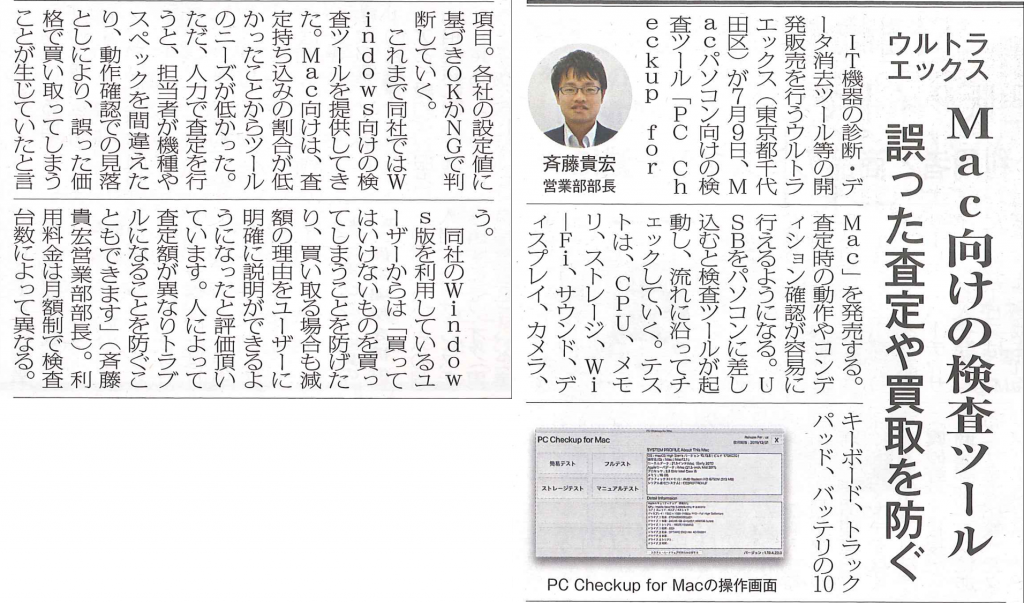 ウルトラ
エックス
Mac向けの検査ツール
誤った査定や買取を防ぐ
IT機器の診断・デ
ータ消去ツール等の開
発販売を行うウルトラ
エックス（東京都千代
田区）が7月9日、M
acパソコン向けの検
査ツール「PC Ch
eckup for
斉藤貴宏
営業部部長
Mac」を発売する。
査定時の動作やコンデ
ィション確認が容易に
行えるようになる。U
SBをパソコンに差し
込むと検査ツールが起
動し、流れに沿ってチ
ェックしていく。テス
トは、CPU、メモ
リ、ストレージ、Wi
ーFi、サウンド、デ
ィスプレイ、カメラ、
キーボード、トラック
パッド、バッテリの10
PC Checkup for Mac
簡易テスト
フルテスト
ストレージテスト
マニュアルテスト
SYSTEM PROFILE About This Mac
Detail Information
PC Checkup for Macの操作画面
項目。各社の設定値に
基づきOKかNGで判
断していく。
これまで同社ではW
indows向けの検
査ツールを提供してき
た。Mac向けは、査
定持ち込みの割合が低
かったことからツール
のニーズが低かった。
ただ、人力で査定を行
うと、担当者が機種や
スペックを間違えた
り、動作確認での見落
としにより、誤った価
格で買い取ってしまう
ことが生じていたと言
う。
同社のWindow
s版を利用しているユ
ーザーからは「買って
はいけないものを買っ
てしまうことを防げた
り、買い取る場合も減
額の理由をユーザーに
明確に説明ができるよ
うになったと評価頂い
ています。人によって
査定額が異なりトラブ
ルになることを防ぐこ
ともできます」（斉藤
貴宏営業部部長）。利
用料金は月額制で検査
台数によって異なる。